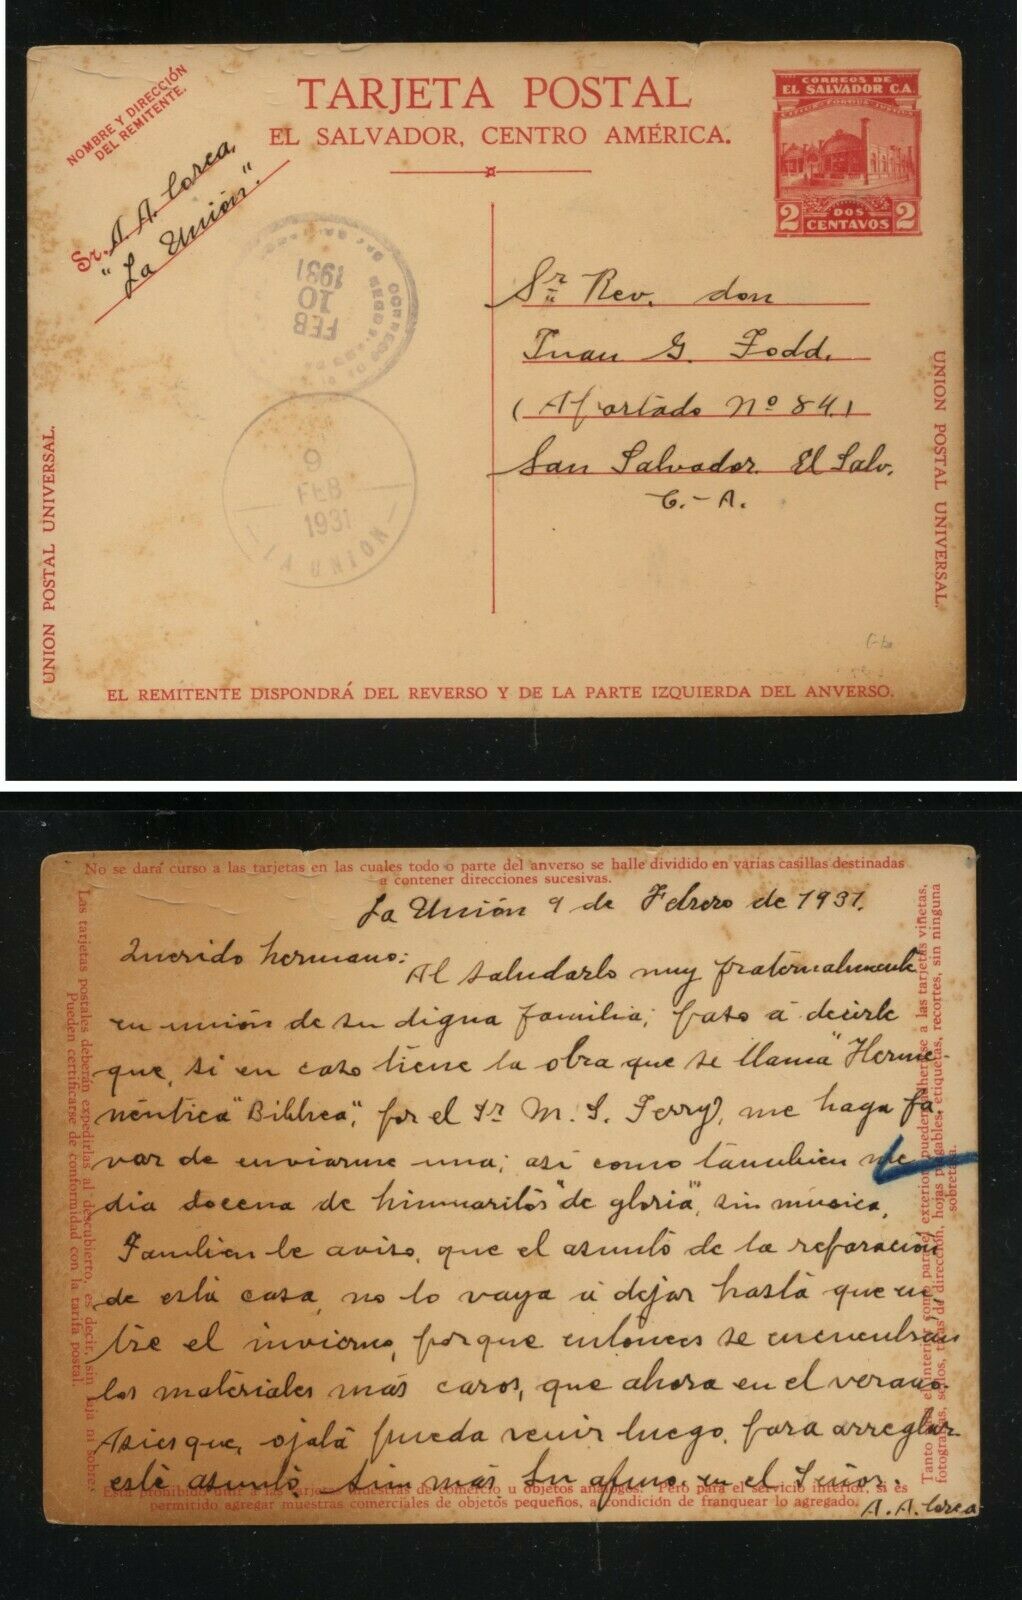 NOMBRE Y DIRECCIÓN
DEL REMITENTE.
Sr. A. A. Corea,
"La Unión".
TARJETA POSTAL
EL SALVADOR, CENTRO AMÉRICA.
CORREOS DE
EL SALVADOR C.A.
2 DOS CENTAVOS 2
FEB
10
1931
9
FEB
1931
LA UNION
Sr. Rev. don
Juan G. Todd.
(Apartado Nº 84.)
San Salvador. El Salv.
C.-A.
UNION POSTAL UNIVERSAL.
UNION POSTAL UNIVERSAL.
EL REMITENTE DISPONDRÁ DEL REVERSO Y DE LA PARTE IZQUIERDA DEL ANVERSO.
No se dará curso a las tarjetas en las cuales todo o parte del anverso se halle dividido en varias casillas destinadas
a contener direcciones sucesivas.
La Unión 9 de Febrero de 1931.
Querido hermano:
Al saludarlo muy fraternalmente
en unión de su digna familia; paso á decirle
que, si en caso tiene la obra que se llama "Herme-
néutica "Bíblica", por el Dr. M. S. Terry), me haga fa
vor de enviarme una; así como támbien me
dia docena de himnaritos "de gloria", sin música.
Tambien le aviso, que el asunto de la reparación
de está casa, no lo vaya á dejar hasta que en
tre el invierno, porque entonces se encuentran
los materiales más caros, que ahora en el verano.
Asies que, ojalá pueda venir luego, para arreglar
este asunto. Sin más Su afmo. en el Señor.
A. A. Corea
Las tarjetas postales deberán expedirlas al descubierto, es decir, sin faja ni sobre.
Pueden certificarse de conformidad con la tarifa postal.
Tanto en el interior como para el exterior pueden adherirse a las tarjetas viñetas,
fotografías, sellos, tiras de dirección, hojas plegables, etiquetas, recortes, sin ninguna
sobretasa.
Está prohibido unir a las tarjetas muestras de comercio u objetos análogos. Pero para el servicio interior, sí es
permitido agregar muestras comerciales de objetos pequeños, a condición de franquear lo agregado.